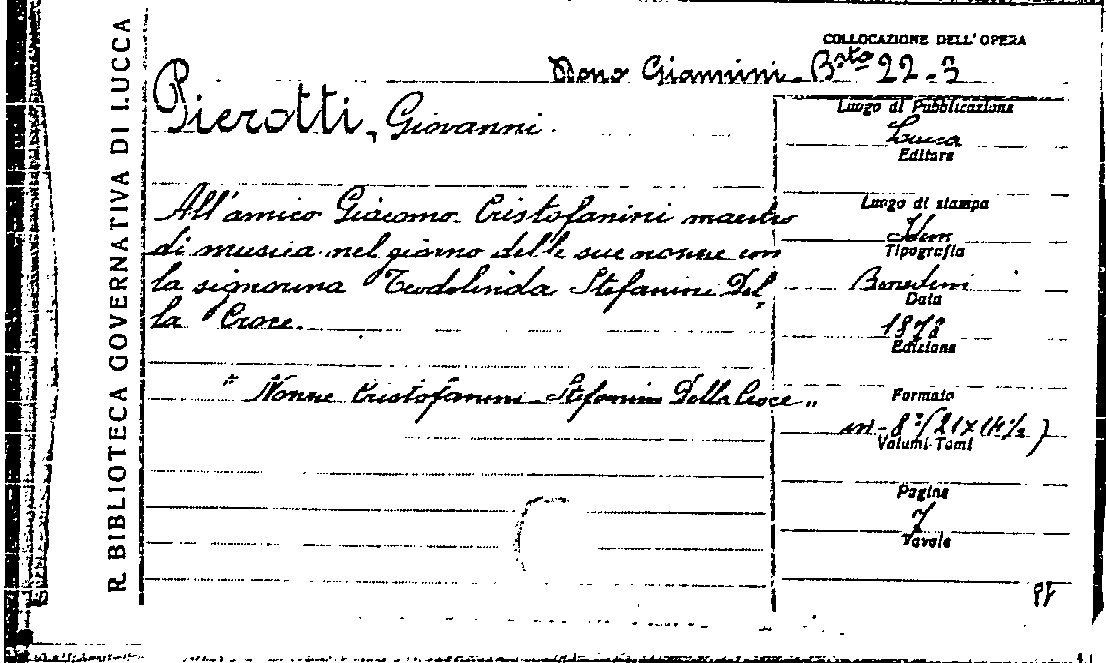 R. BIBLIOTECA GOVERNATIVA DI LUCCA
COLLOCAZIONE DELL'OPERA
Dono Giannini - Bsta 22 - 3
Pierotti, Giovanni.
All'amico Giacomo Cristofanini maestro
di musica nel giorno delle sue nozze con
la signorina Teodolinda Stefanini Del
la Croce.
" Nozze Cristofanini - Stefanini Della Croce "
Luogo di Pubblicazione
Lucca
Editore
Luogo di stampa
Idem
Tipografia
Benedini
Data
1878
Edizione
Formato
in-8° (21x14½)
Volumi-Tomi
Pagine
7
Tavole